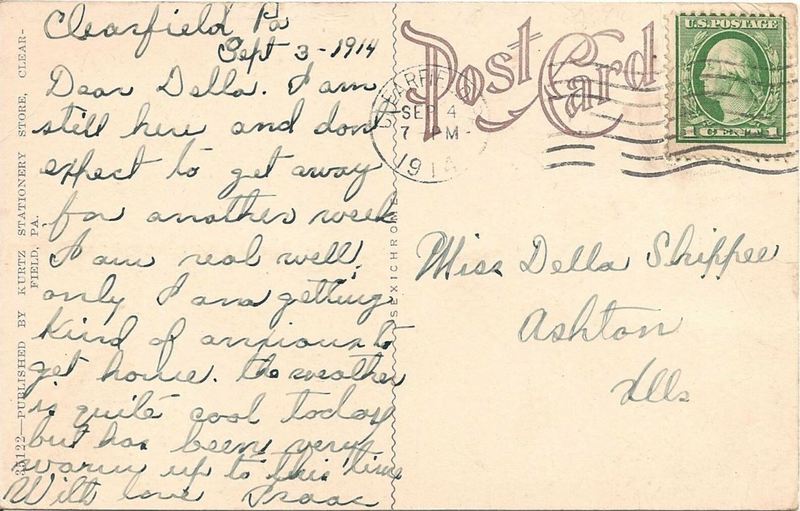 Clearfield Pa
Sept 3-1914
Dear Della. I am
still here and dont
expect to get away
for another week
I am real well,
only I am getting
kind of anxious to
get home. the weather
is quite cool today
but has been very
warm up to this time
With love Isaac
35122—PUBLISHED BY KURTZ STATIONERY STORE, CLEAR-
FIELD, PA.
SEXICHROME
Post Card
CLEARFIELD
SEP 4
7 PM
1914
U.S. POSTAGE
1 CENT 1
Miss Della Shippee
Ashton
Ills